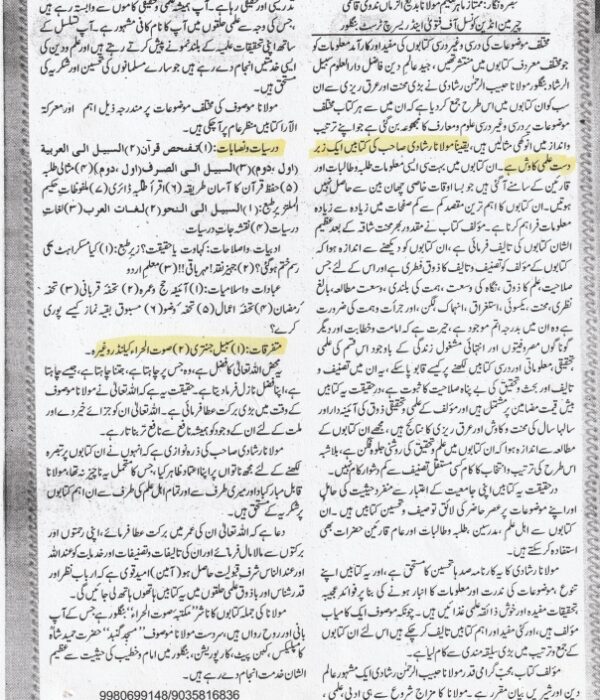 تبصرہ نگار: ممتاز ماہر تعلیم مولانا بدیع الزماں ندوی قاسمی
چیرمین انڈین کونسل آف فتویٰ اینڈ ریسرچ ٹرسٹ بنگلور
مختلف موضوعات کی درسی وغیر درسی کتابوں کی مفید اور کارآمد معلومات کو
جو مختلف معروف کتابوں میں منتشر تھیں، جید عالم دین فاضل دارالعلوم سبیل
الرشاد بنگلور مولانا حبیب الرحمٰن رشادی نے بڑی محنت اور عرق ریزی سے ان
سب کو ان کتابوں میں اس طرح جمع کر دیا ہے کہ ان میں سے ہر کتاب مختلف
موضوعات پر درسی وغیر درسی علوم ومعارف کا مجموعہ بن گئی ہے جو اپنے ترتیب
وانداز میں انوکھی مثالیں ہیں، یقیناً مولانا رشادی صاحب کی کتابیں ایک زبر
دست علمی کاوش ہے۔ ان کتابوں میں بہت سی ایسی معلومات طلبہ وطالبات اور
قارئین کے سامنے آگئی ہیں جو بسا اوقات خاصی چھان بین سے حاصل نہیں
ہوتیں۔ ان کتابوں کا اہم ترین مقصد کم سے کم صفحات میں زیادہ سے زیادہ
معلومات فراہم کرنا ہے۔ مؤلف کتاب نے مقدور بھر محنت شاقہ کے بعد عظیم
الشان کتابوں کی تالیف فرمائی ہے، ان کتابوں کو دیکھنے سے اندازہ ہوا کہ
کتابوں کے مؤلف کو تصنیف وتالیف کا ذوق فطری ہے اور اس کے لئے جس
علمی ذوق، نگاہ کی وسعت، ہمت کی بلندی، وسعت مطالعہ، بالغ
نظری، محنت، یکسوئی، استغراق، انہماک، لگن، اور جرأت وہمت کی ضرورت
ہے وہ ان میں بدرجہ اتم موجود ہے، حیرت ہے کہ امامت وخطابت اور دیگر
گوناگوں مصروفیتوں اور انتہائی مشغول زندگی کے باوجود اس قسم کی علمی
تحقیقی معلوماتی اور درسی کتابیں لکھنے پر کیسے قابو پا سکے، یہ ان میں تصنیف و
تالیف اور بحث وتحقیق کی بے پناہ صلاحیت کا ثبوت ہے، درحقیقت یہ کتابیں
بیش قیمت مضامین پر مشتمل ہیں اور مؤلف کے علمی وتحقیقی ذوق کی آئینہ دار اور
سالہا سال کی محنت و کاوش اور عرق ریزی کا نتائج ہیں، مجھے ان کتابوں کے
مطالعہ سے اندازہ ہوا کہ ان کتابوں میں علم وتحقیق کی روشنی جلوہ فگن ہے، بلاشبہ
اس طرح کی ترتیب وانتخاب کا کام کسی مستقل تصنیف سے کم دشوار کام نہیں۔
درحقیقت یہ کتابیں اپنی جامعیت کے اعتبار سے منفرد حیثیت کی حامل
اور اپنے موضوعات پر عصر حاضر کی لائق توصیف وتحسین کتابیں ہیں۔ ان
کتابوں سے اہل علم، مدرسین، طلبہ وطالبات اور عام قارئین حضرات بھی
استفادہ کر سکتے ہیں۔
مولانا رشادی کا یہ کارنامہ صد ہا تحسین کا مستحق ہے، اور یہ کتابیں اپنے
تنوع، موضوعات کی ندرت اور معلومات کا انبار ہونے کی بنا پر فوائد عجیبہ
تحقیقات مفیدہ اور خوش ذائقہ علمی غذائیں ہیں۔ چونکہ موصوف ایک کامیاب
مؤلف ہیں، اور کئی مفید اور اہم کتابیں تالیف کر چکے ہیں اس لئے ان کتابوں
کے جمع وترتیب میں بڑی سلیقہ مندی سے کام لیا ہے۔
مؤلف کتاب محب گرامی قدر مولانا حبیب الرحمٰن رشادی ایک مشہور عالم
دین اور شیریں بیان مقرر ہے۔ مولانا کا مزاج شروع سے ہی ادبی، علمی،
جس کی وجہ سے علمی حلقوں میں آپ کا نام کافی مشہور ہے۔ آپ تسلسل کے
ساتھ اپنی تحقیقات علمیہ کے بلند نمونے پیش کرتے رہتے ہیں اور علم ودین کی
ایسی خدمتیں انجام دے رہے ہیں جو سارے مسلمانوں کی تحسین اور شکریہ کی
مستحق ہیں۔
مولانا موصوف کی مختلف موضوعات پر مندرجہ ذیل اہم اور معرکۃ
الآراء کتابیں منظر عام پر آچکی ہیں۔
درسیات ونصابات: (۱) تفحص قرآن (۲) السبیل الی العربیۃ
(اول، دوم) (۳) السبیل الی الصرف (اول، دوم) (۴) مثالی طلبہ
(۵) حفظ قرآن کا آسان طریقہ (۶) اقرأ طلبہ ڈائری (۷) ملفوظات حکیم
الملت زیر طبع: (۱) السبیل الی النحو (۲) لغات العرب (۳) لغات
درسیات (۴) نقشہ جات درسیات
ادبیات واصلاحات: کہاوت یا حقیقت؟ زیر طبع: (۱) کیا مسکراہٹ بھی
رسم ختم ہوگئی؟ (۲) جہیز نقد! مہربانی!! (۳) معلم اردو
عبادات واسلامیات: (۱) آئینہ حج وعمرہ (۲) تحفۂ قربانی (۳) تحفۂ
رمضان (۴) تحفۂ اعمال (۵) تحفۂ وضو (۶) مسبوق بقیہ نماز کیسے پوری
کرے؟
متفرقات: (۱) سبیل جنتری (۲) صوت الحراء کیلنڈر وغیرہ۔
یہ محض اللہ تعالیٰ کا فضل ہے، وہ جس پر چاہتا ہے، جتنا چاہتا ہے، جیسے چاہتا
ہے، اپنا فضل نازل فرما دیتا ہے۔ حقیقت یہ ہے کہ اللہ تعالیٰ نے مولانا موصوف
کے وقت میں بڑی برکت عطا فرمائی ہے۔ اللہ تعالیٰ ان کو جزائے خیر دے اور
ملت کے لئے ان کے وجود کو ہمیشہ نافع سے نافع تر بناتا رہے۔
مولانا رشادی صاحب کی ذرہ نوازی ہے کہ انہوں نے ان کتابوں پر تبصرہ
لکھنے کے لئے مجھ ناتواں پر اپنا اعتماد ظاہر کیا، جس کا متحمل یہ ناچیز نہ تھا، مولانا
قابل مبارکباد اور میری طرف سے اور تمام اہل علم کی طرف سے ان اہم کتابوں
پر شکریہ کے مستحق ہیں۔
دعا ہے کہ اللہ تعالیٰ ان کی عمر میں برکت عطا فرمائے، اپنی رحمتوں اور
برکتوں سے مالا مال فرمائے اور ان کی تالیفات وتصنیفات اور خدمات کو عند اللہ
اور عند الناس شرف قبولیت حاصل ہو (آمین) امید قوی ہے کہ ارباب نظر اور
قدر شناس اور باذوق علمی حلقوں میں یہ کتابیں ہاتھوں ہاتھ لی جائیں گی۔
مولانا کی جملہ کتابوں کا ناشر "مکتبہ صوت الحراء" بنگلور ہے جس کے آپ
بانی اور روح رواں ہیں، سردست مولانا موصوف "مسجد گنبد" حضرت حمید شاہ
کامپلیکس، کبن پیٹ، کارپوریشن، بنگلور میں امام وخطیب کی حیثیت سے عظیم
الشان خدمت انجام دے رہے ہیں۔
9980699148/9035816836